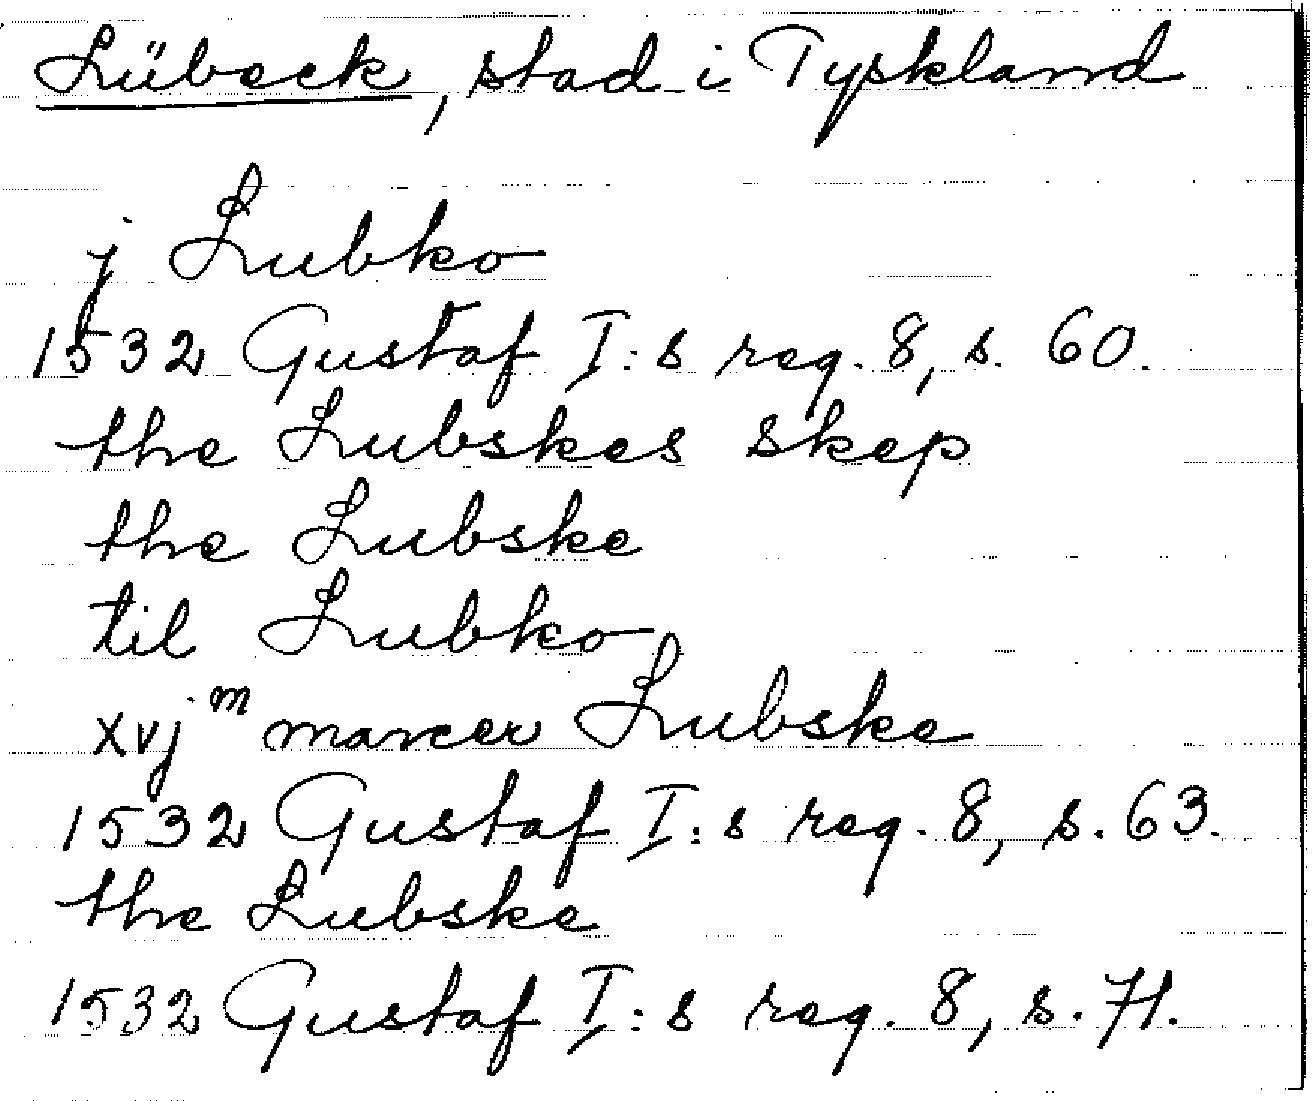 Lübeck, stad i Tyskland
j Lubko
1532 Gustaf I:s reg. 8, s. 60.
the Lubskes skep
the Lubske
til Lubko
xvjᵐ marcer Lubske
1532 Gustaf I:s reg. 8, s. 63.
the Lubske
1532 Gustaf I:s reg. 8, s. 71.